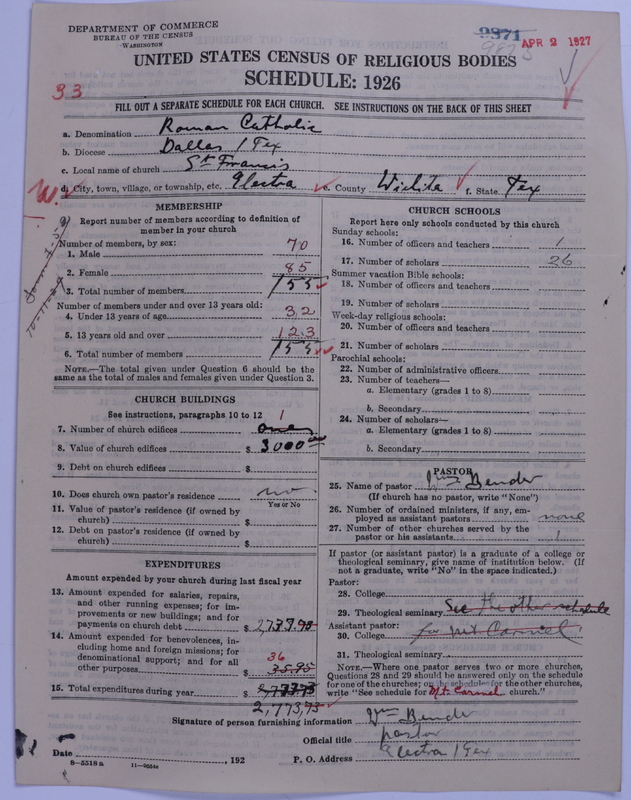 DEPARTMENT OF COMMERCE
BUREAU OF THE CENSUS
WASHINGTON
9871
APR 2 1927
UNITED STATES CENSUS OF RELIGIOUS BODIES
SCHEDULE: 1926
33
FILL OUT A SEPARATE SCHEDULE FOR EACH CHURCH. SEE INSTRUCTIONS ON THE BACK OF THIS SHEET
a. Denomination Roman Catholic
b. Diocese Dallas / Tex
c. Local name of church St Francis
d. City, town, village, or township, etc. Electra e. County Wichita f. State Tex
MEMBERSHIP
Report number of members according to definition of
member in your church
Number of members, by sex:
1. Male 70
2. Female 85
3. Total number of members 155
Number of members under and over 13 years old:
4. Under 13 years of age 32
5. 13 years old and over 123
6. Total number of members 155
NOTE.—The total given under Question 6 should be the
same as the total of males and females given under Question 3.
CHURCH BUILDINGS
See instructions, paragraphs 10 to 12
7. Number of church edifices one 1
8. Value of church edifices $ 3000
9. Debt on church edifices $
10. Does church own pastor's residence no
Yes or No
11. Value of pastor's residence (if owned by
church) $
12. Debt on pastor's residence (if owned by
church) $
EXPENDITURES
Amount expended by your church during last fiscal year
13. Amount expended for salaries, repairs,
and other running expenses; for im-
provements or new buildings; and for
payments on church debt $ 2,737.95
14. Amount expended for benevolences, in-
cluding home and foreign missions; for
denominational support; and for all
other purposes $ 35.95 36
15. Total expenditures during year $ 2,773.75
2,773,75
CHURCH SCHOOLS
Report here only schools conducted by this church
Sunday schools:
16. Number of officers and teachers 1
17. Number of scholars 26
Summer vacation Bible schools:
18. Number of officers and teachers
19. Number of scholars
Week-day religious schools:
20. Number of officers and teachers
21. Number of scholars
Parochial schools:
22. Number of administrative officers
23. Number of teachers—
a. Elementary (grades 1 to 8)
b. Secondary
24. Number of scholars—
a. Elementary (grades 1 to 8)
b. Secondary
PASTOR
25. Name of pastor Wm Bender
(If church has no pastor, write "None")
26. Number of ordained ministers, if any, em-
ployed as assistant pastors none
27. Number of other churches served by the
pastor or his assistants 1
If pastor (or assistant pastor) is a graduate of a college or
theological seminary, give name of institution below. (If
not a graduate, write "No" in the space indicated.)
Pastor:
28. College
29. Theological seminary See the other schedule
Assistant pastor:
30. College for Mt Carmel
31. Theological seminary
NOTE.—Where one pastor serves two or more churches,
Questions 28 and 29 should be answered only on the schedule
for one of the churches; on the schedules for the other churches,
write "See schedule for Mt. Carmel church."
Signature of person furnishing information Wm Bender
Official title pastor
Date , 192 P. O. Address Electra / Tex
8-5518a